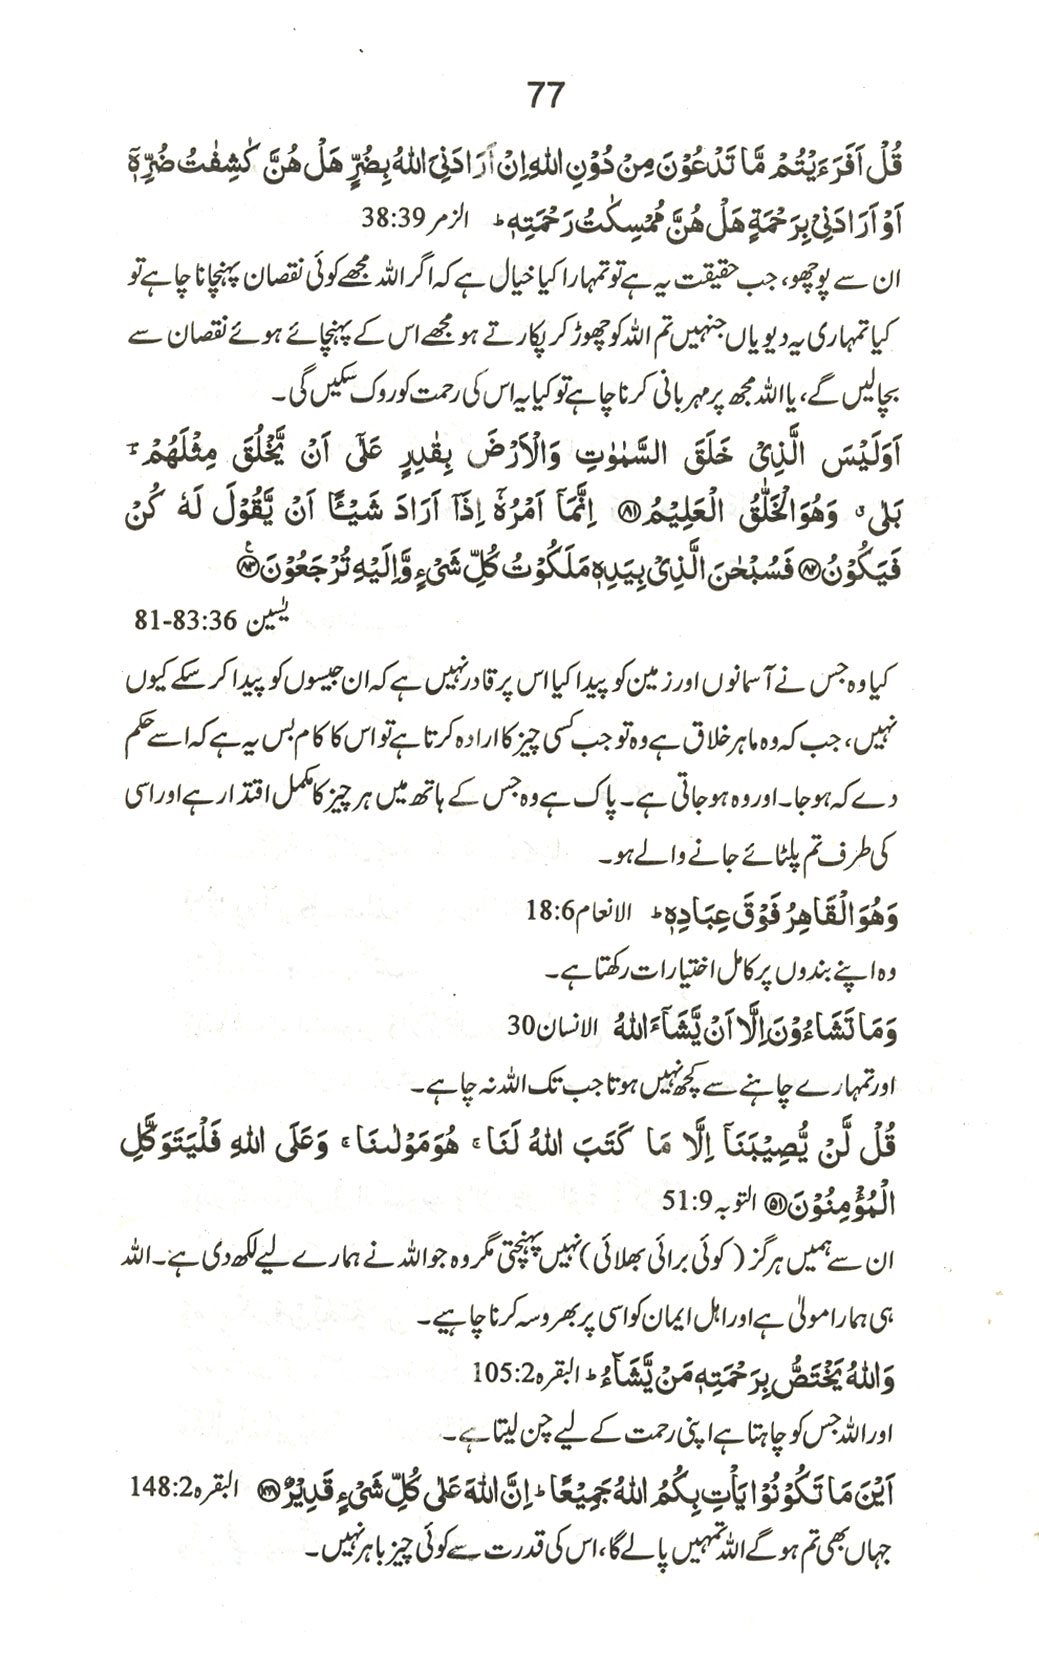 77
قُلْ اَفَرَءَيْتُمْ مَّا تَدْعُوْنَ مِنْ دُوْنِ اللهِ اِنْ اَرَادَنِيَ اللهُ بِضُرٍّ هَلْ هُنَّ كٰشِفٰتُ ضُرِّهٖٓ
اَوْ اَرَادَنِيْ بِرَحْمَةٍ هَلْ هُنَّ مُمْسِكٰتُ رَحْمَتِهٖ ؕ الزمر 38:39
ان سے پوچھو، جب حقیقت یہ ہے تو تمہارا کیا خیال ہے کہ اگر اللہ مجھے کوئی نقصان پہنچانا چاہے تو
کیا تمہاری یہ دیویاں جنہیں تم اللہ کو چھوڑ کر پکارتے ہو مجھے اس کے پہنچائے ہوئے نقصان سے
بچالیں گے، یا اللہ مجھ پر مہربانی کرنا چاہے تو کیا یہ اس کی رحمت کو روک سکیں گی۔
اَوَلَيْسَ الَّذِيْ خَلَقَ السَّمٰوٰتِ وَالْاَرْضَ بِقٰدِرٍ عَلٰٓى اَنْ يَّخْلُقَ مِثْلَهُمْ ؕ
بَلٰى ۗ وَهُوَ الْخَلّٰقُ الْعَلِيْمُ ﴿۸۱﴾ اِنَّمَآ اَمْرُهٗٓ اِذَآ اَرَادَ شَيْـًٔا اَنْ يَّقُوْلَ لَهٗ كُنْ
فَيَكُوْنُ ﴿۸۲﴾ فَسُبْحٰنَ الَّذِيْ بِيَدِهٖ مَلَكُوْتُ كُلِّ شَيْءٍ وَّاِلَيْهِ تُرْجَعُوْنَ ﴿۸۳﴾
یٰسین 81-83:36
کیا وہ جس نے آسمانوں اور زمین کو پیدا کیا اس پر قادر نہیں ہے کہ ان جیسوں کو پیدا کر سکے کیوں
نہیں، جب کہ وہ ماہر خلاق ہے وہ تو جب کسی چیز کا ارادہ کرتا ہے تو اس کا کام بس یہ ہے کہ اسے حکم
دے کہ ہو جا۔ اور وہ ہو جاتی ہے۔ پاک ہے وہ جس کے ہاتھ میں ہر چیز کا مکمل اقتدار ہے اور اسی
کی طرف تم پلٹائے جانے والے ہو۔
وَهُوَ الْقَاهِرُ فَوْقَ عِبَادِهٖ ؕ الانعام 18:6
وہ اپنے بندوں پر کامل اختیارات رکھتا ہے۔
وَمَا تَشَاءُوْنَ اِلَّا اَنْ يَّشَآءَ اللهُ الانسان 30
اور تمہارے چاہنے سے کچھ نہیں ہوتا جب تک اللہ نہ چاہے۔
قُلْ لَّنْ يُّصِيْبَنَآ اِلَّا مَا كَتَبَ اللهُ لَنَا ۚ هُوَ مَوْلٰىنَا ۚ وَعَلَى اللهِ فَلْيَتَوَكَّلِ
الْمُؤْمِنُوْنَ ﴿۵۱﴾ التوبہ 51:9
ان سے ہمیں ہرگز (کوئی برائی بھلائی) نہیں پہنچتی مگر وہ جو اللہ نے ہمارے لیے لکھ دی ہے۔ اللہ
ہی ہمارا مولیٰ ہے اور اہل ایمان کو اسی پر بھروسہ کرنا چاہیے۔
وَاللهُ يَخْتَصُّ بِرَحْمَتِهٖ مَنْ يَّشَآءُ ؕ البقرہ 105:2
اور اللہ جس کو چاہتا ہے اپنی رحمت کے لیے چن لیتا ہے۔
اَيْنَ مَا تَكُوْنُوْا يَاْتِ بِكُمُ اللهُ جَمِيْعًا ؕ اِنَّ اللهَ عَلٰى كُلِّ شَيْءٍ قَدِيْرٌ ﴿۱۴۸﴾ البقرہ 148:2
جہاں بھی تم ہو گے اللہ تمہیں پالے گا، اس کی قدرت سے کوئی چیز باہر نہیں۔